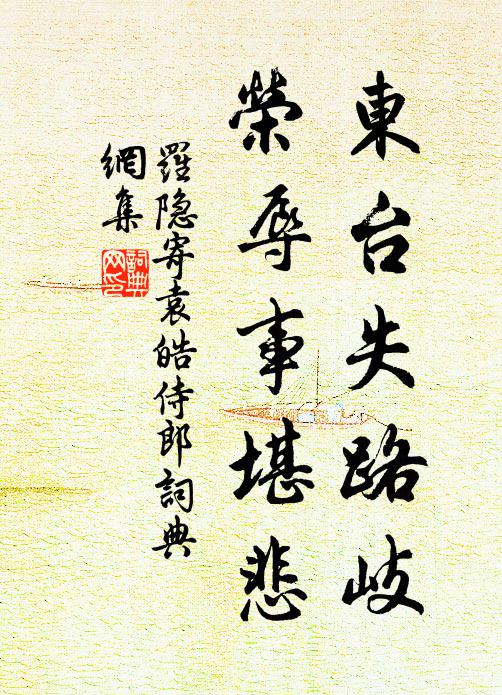 東台失路岐
榮辱事堪悲
羅隐寄袁皓侍郎詞典
網集
詞典
网印